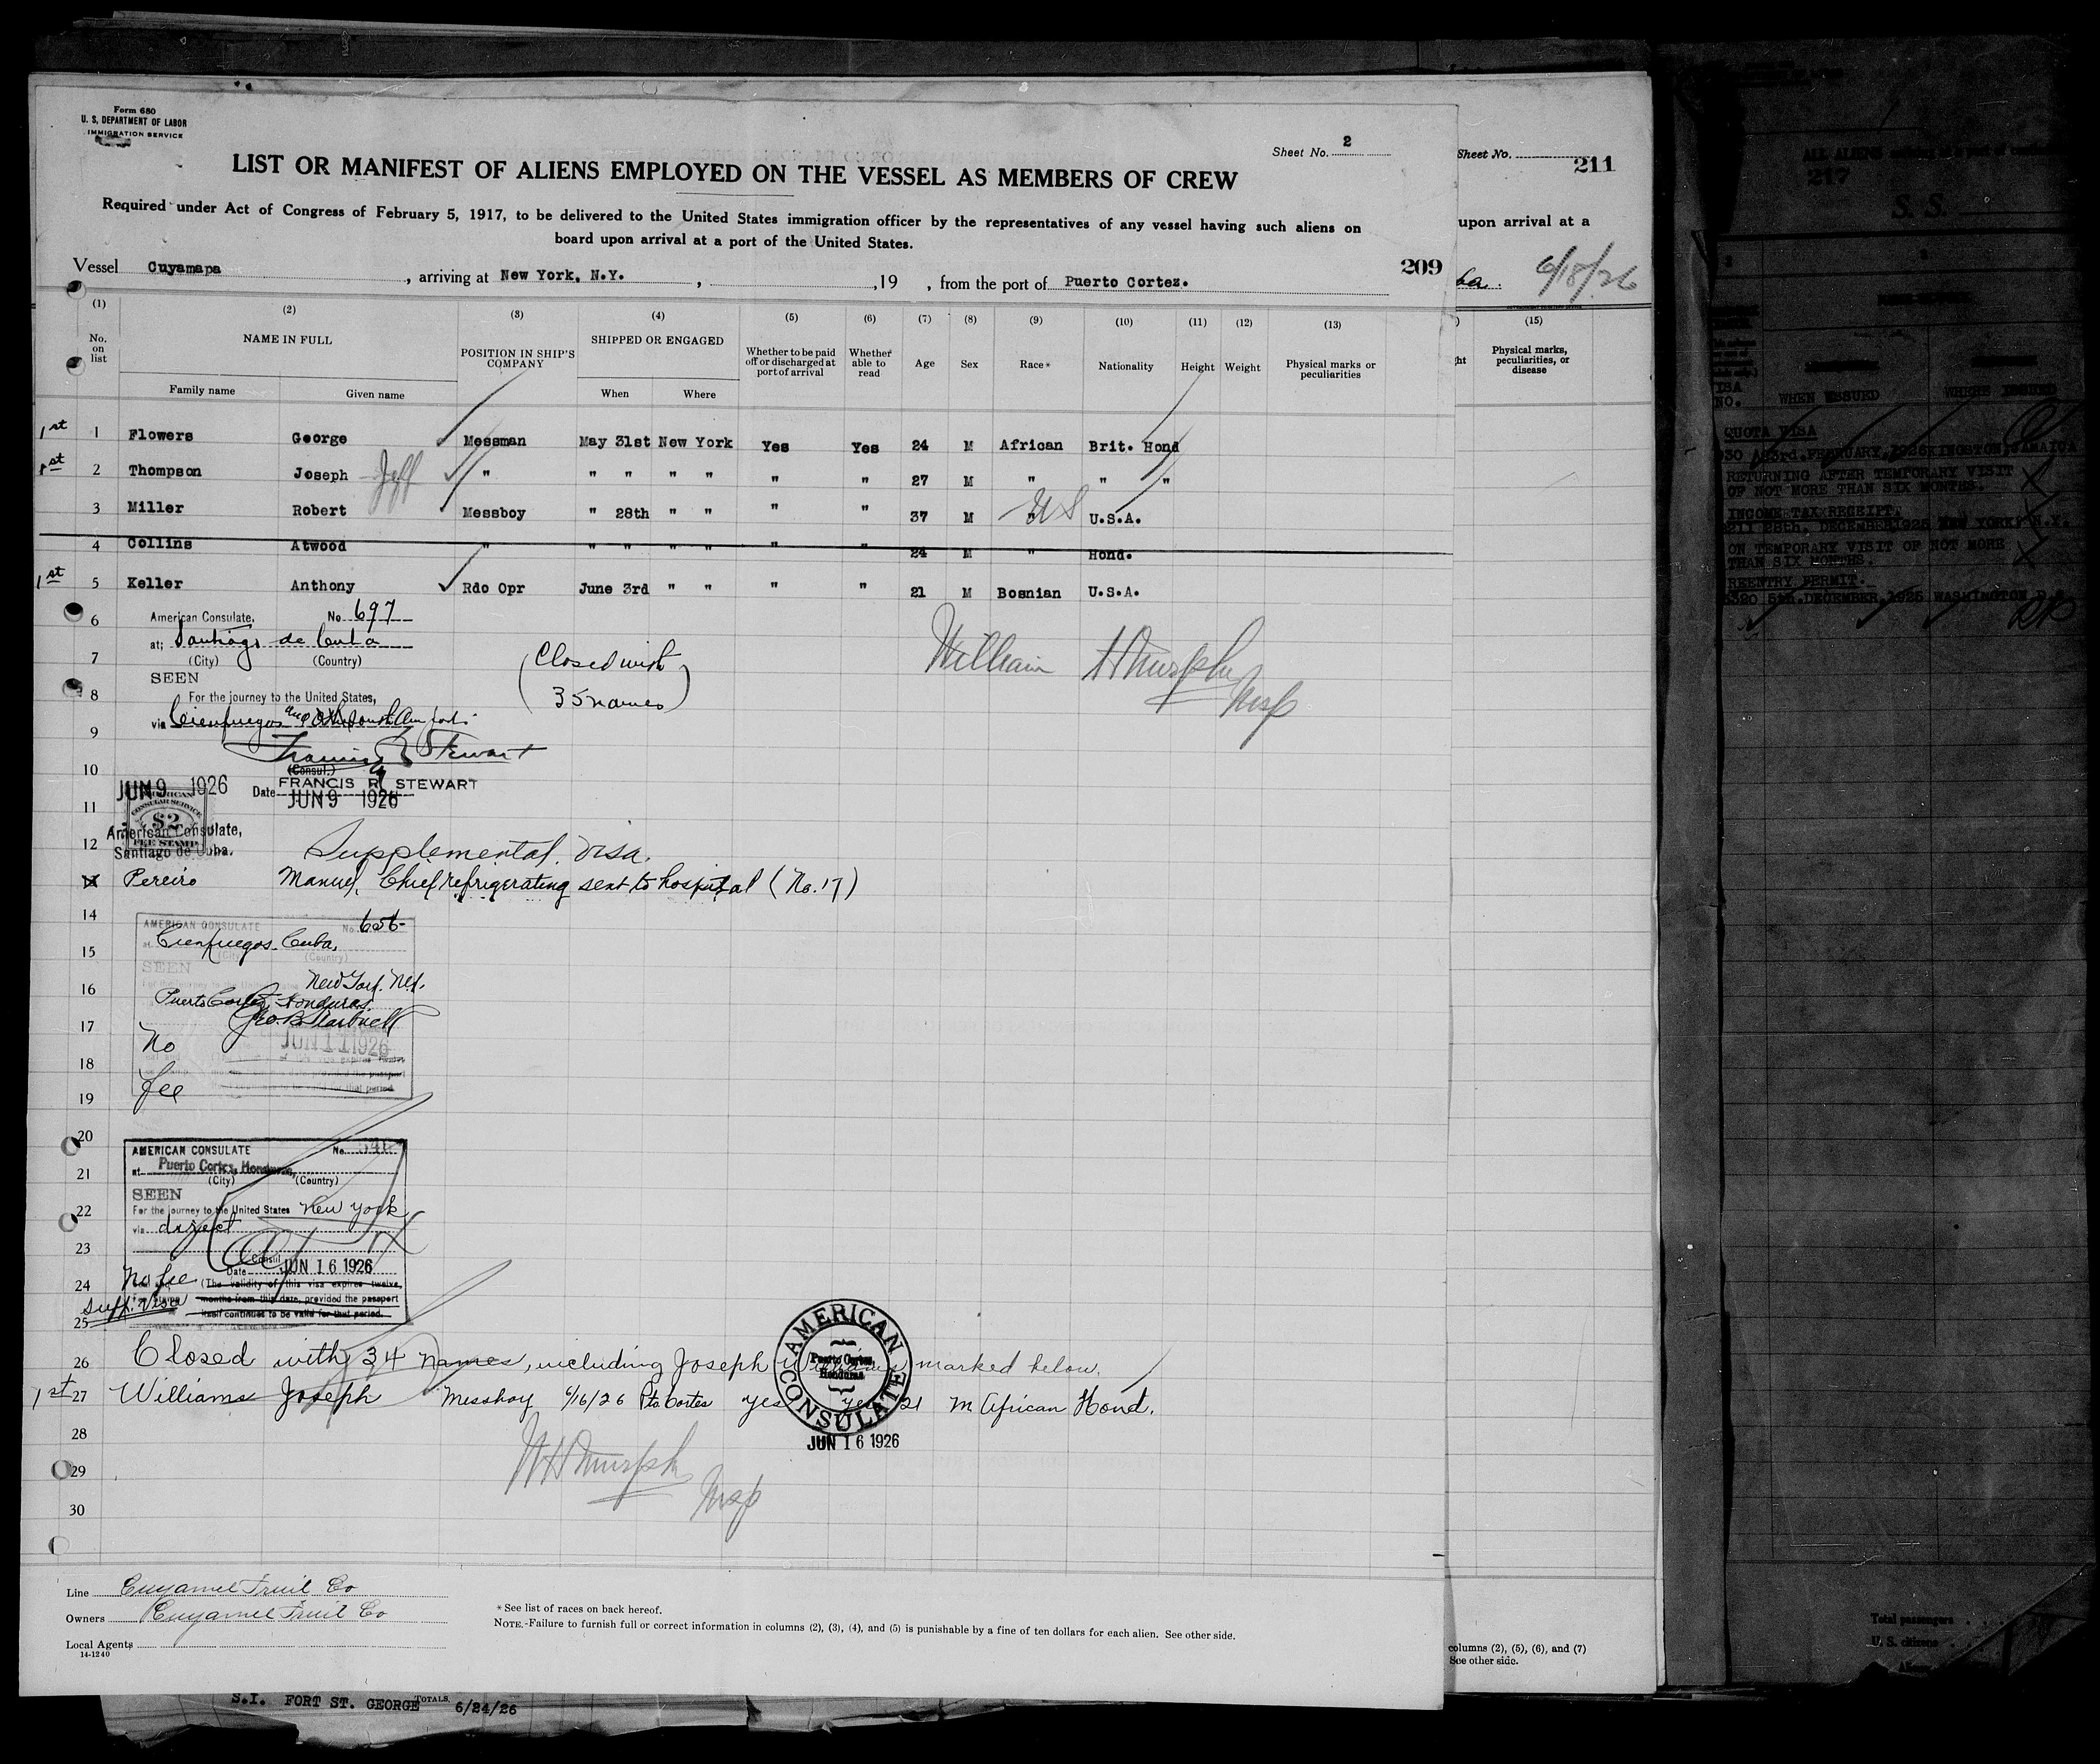 Form 680
U. S. DEPARTMENT OF LABOR
IMMIGRATION SERVICE
Sheet No. 2
LIST OR MANIFEST OF ALIENS EMPLOYED ON THE VESSEL AS MEMBERS OF CREW
Required under Act of Congress of February 5, 1917, to be delivered to the United States immigration officer by the representatives of any vessel having such aliens on
board upon arrival at a port of the United States.
209
Vessel Cuyamapa, arriving at New York, N.Y., ,19 , from the port of Puerto Cortez.
(1) (2) (3) (4) (5) (6) (7) (8) (9) (10) (11) (12) (13)
No. on list NAME IN FULL POSITION IN SHIP'S COMPANY SHIPPED OR ENGAGED Whether to be paid off or discharged at port of arrival Whether able to read Age Sex Race* Nationality Height Weight Physical marks or peculiarities
Family name Given name When Where
1st 1 Flowers George Messman May 31st New York Yes Yes 24 M African Brit. Hond
1st 2 Thompson Joseph Jeff " " " " " " " 27 M " " "
3 Miller Robert Messboy " 28th " " " " 37 M " US U.S.A.
4 Collins Atwood " " " " " " " 24 M " Hond.
1st 5 Keller Anthony Rdo Opr June 3rd " " " " 21 M Bosnian U.S.A.
6 American Consulate, No. 697
at; Santiago de Cuba
7 (City) (Country)
SEEN
(Closed with
35 names)
William H Murphy
Insp
8 For the journey to the United States,
via Cienfuegos and
9 Francis R Stewart
10 (Consul.)
FRANCIS R. STEWART
JUN 9 1926
Date JUN 9 1926
11 AMERICAN CONSULAR SERVICE
$2
FEE STAMP
American Consulate,
Santiago de Cuba.
12 Supplemental visa.
Pereiro Manuel, Chief refrigerating sent to hospital (No. 17)
14 AMERICAN CONSULATE No. 656
15 at Cienfuegos Cuba,
(City) (Country)
SEEN
16 New York, N.Y.
Puerto Cortez, Honduras
17 No
JUN 11 1926
18
19 fee
20 AMERICAN CONSULATE No.
21 at Puerto Cortez, Honduras,
(City) (Country)
SEEN
22 For the journey to the United States New York
via direct
23
Consul
Date JUN 16 1926
24 No fee (The validity of this visa expires twelve
months from this date, provided the passport
Supp. Visa itself continues to be valid for that period.
25
26 Closed with 34 names, including Joseph Williams marked below.
1st 27 Williams Joseph Messboy 6/16/26 Pto Cortes yes yes 21 M African Hond.
AMERICAN CONSULATE
Puerto Cortez, Honduras
JUN 16 1926
28 W H Murphy
29 Insp
30
Line Cuyamel Fruit Co
Owners Cuyamel Fruit Co
Local Agents
14-1240
* See list of races on back hereof.
NOTE.-Failure to furnish full or correct information in columns (2), (3), (4), and (5) is punishable by a fine of ten dollars for each alien. See other side.
S.I. FORT ST. GEORGE TOTALS. 6/24/26
Sheet No.
211
upon arrival at a
6/18/26
(15)
Physical marks, peculiarities, or disease
columns (2), (5), (6), and (7)
See other side.
ALL ALIENS
217
S. S.
VISA NO. WHEN ISSUED WHERE ISSUED
QUOTA VISA
3rd. FEBRUARY, 1926 KINGSTON, JAMAICA
RETURNING AFTER TEMPORARY VISIT
OF NOT MORE THAN SIX MONTHS.
INCOME TAX RECEIPT.
28th. DECEMBER 1925 NEW YORK, N.Y.
ON TEMPORARY VISIT OF NOT MORE
THAN SIX MONTHS.
REENTRY PERMIT.
5th. DECEMBER, 1925 WASHINGTON D.C.
Total passengers
U. S. citizens